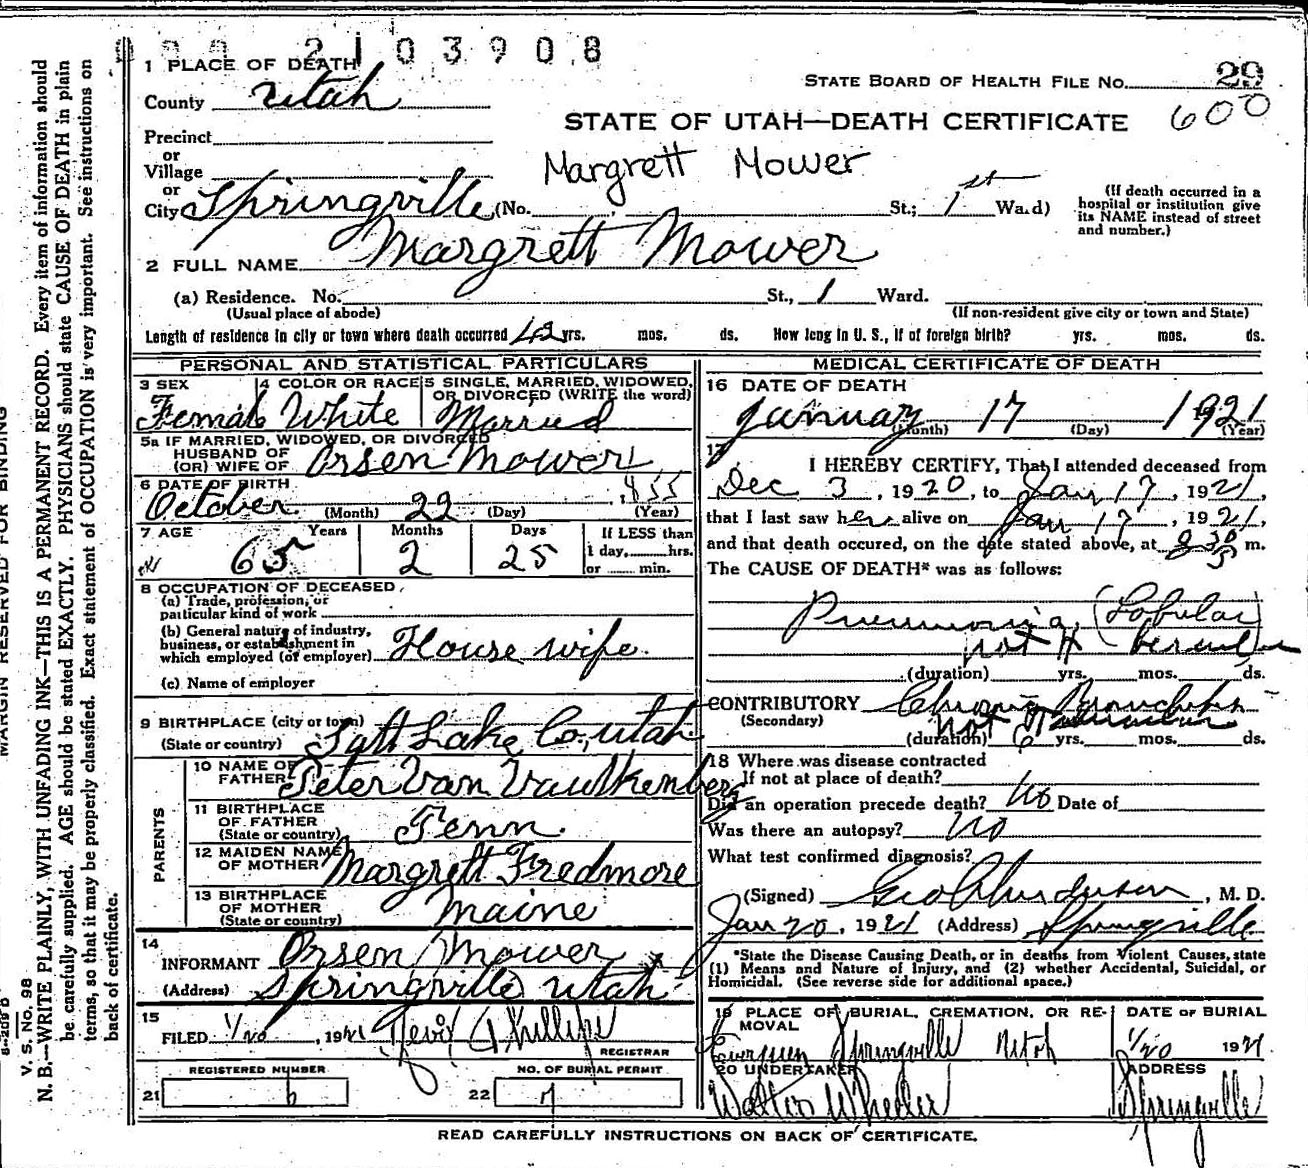 2103908
1 PLACE OF DEATH
STATE BOARD OF HEALTH FILE No. 29
County Utah
600
STATE OF UTAH—DEATH CERTIFICATE
Precinct
or
Village
Margrett Mower
or
City Springville (No. St.; 1st Ward)
(If death occurred in a hospital or institution give its NAME instead of street and number.)
2 FULL NAME Margrett Mower
(a) Residence. No. St., 1 Ward.
(Usual place of abode)
(If non-resident give city or town and State)
Length of residence in city or town where death occurred 42 yrs. mos. ds. How long in U. S., if of foreign birth? yrs. mos. ds.
PERSONAL AND STATISTICAL PARTICULARS
3 SEX Female
4 COLOR OR RACE White
5 SINGLE, MARRIED, WIDOWED, OR DIVORCED (WRITE the word) Married
5a IF MARRIED, WIDOWED, OR DIVORCED
HUSBAND OF
(OR) WIFE OF Orsen Mower
6 DATE OF BIRTH
October (Month) 22 (Day) , 1855 (Year)
7 AGE 65 Years 2 Months 25 Days
If LESS than
1 day, hrs.
or min.
8 OCCUPATION OF DECEASED
(a) Trade, profession, or
particular kind of work
(b) General nature of industry,
business, or establishment in
which employed (or employer) House wife.
(c) Name of employer
9 BIRTHPLACE (city or town)
(State or country) Salt Lake Co., Utah
PARENTS
10 NAME OF
FATHER Peter Van Vaulkenberg
11 BIRTHPLACE
OF FATHER
(State or country) Tenn.
12 MAIDEN NAME
OF MOTHER Margrett Fredmore
13 BIRTHPLACE
OF MOTHER
(State or country) Maine
14
INFORMANT Orsen Mower
(Address) Springville Utah
15
FILED 1/20, 1921
REGISTRAR
REGISTERED NUMBER
21 6
NO. OF BURIAL PERMIT
22 7
MEDICAL CERTIFICATE OF DEATH
16 DATE OF DEATH
January 17 1921
(Month) (Day) (Year)
17
I HEREBY CERTIFY, That I attended deceased from
Dec 3, 1920, to Jan 17, 1921,
that I last saw her alive on Jan 17, 1921,
and that death occured, on the date stated above, at m.
The CAUSE OF DEATH* was as follows:
Pneumonia (Lobular)
not
(duration) yrs. mos. ds.
CONTRIBUTORY Chronic Bronchitis
(Secondary) not
(duration) 6 yrs. mos. ds.
18 Where was disease contracted
If not at place of death?
Did an operation precede death? No Date of
Was there an autopsy? No
What test confirmed diagnosis?
(Signed) Geo , M. D.
Jan 20, 1921 (Address) Springville
*State the Disease Causing Death, or in deaths from Violent Causes, state
(1) Means and Nature of Injury, and (2) whether Accidental, Suicidal, or
Homicidal. (See reverse side for additional space.)
19 PLACE OF BURIAL, CREMATION, OR RE-
MOVAL
Evergreen Springville Utah
DATE OF BURIAL
1/20 1921
20 UNDERTAKER
Walter Wheeler
ADDRESS
Springville
READ CAREFULLY INSTRUCTIONS ON BACK OF CERTIFICATE.
MARGIN RESERVED FOR BINDING
V. S. No. 98
N. B.—WRITE PLAINLY, WITH UNFADING INK—THIS IS A PERMANENT RECORD. Every item of information should
be carefully supplied. AGE should be stated EXACTLY. PHYSICIANS should state CAUSE OF DEATH in plain
terms, so that it may be properly classified. Exact statement of OCCUPATION is very important. See instructions on
back of certificate.